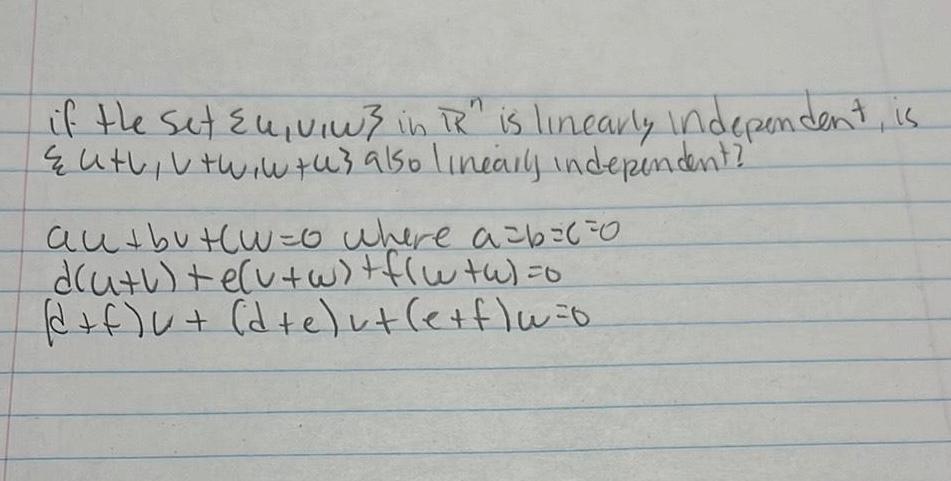 if the set {u,v,w} in ℝⁿ is linearly independent, is
{u+v, v+w, w+u} also linearly independent?
au+bv+cw=0 where a=b=c=0
d(u+v)+e(v+w)+f(w+u)=0
(d+f)u+(d+e)v+(e+f)w=0